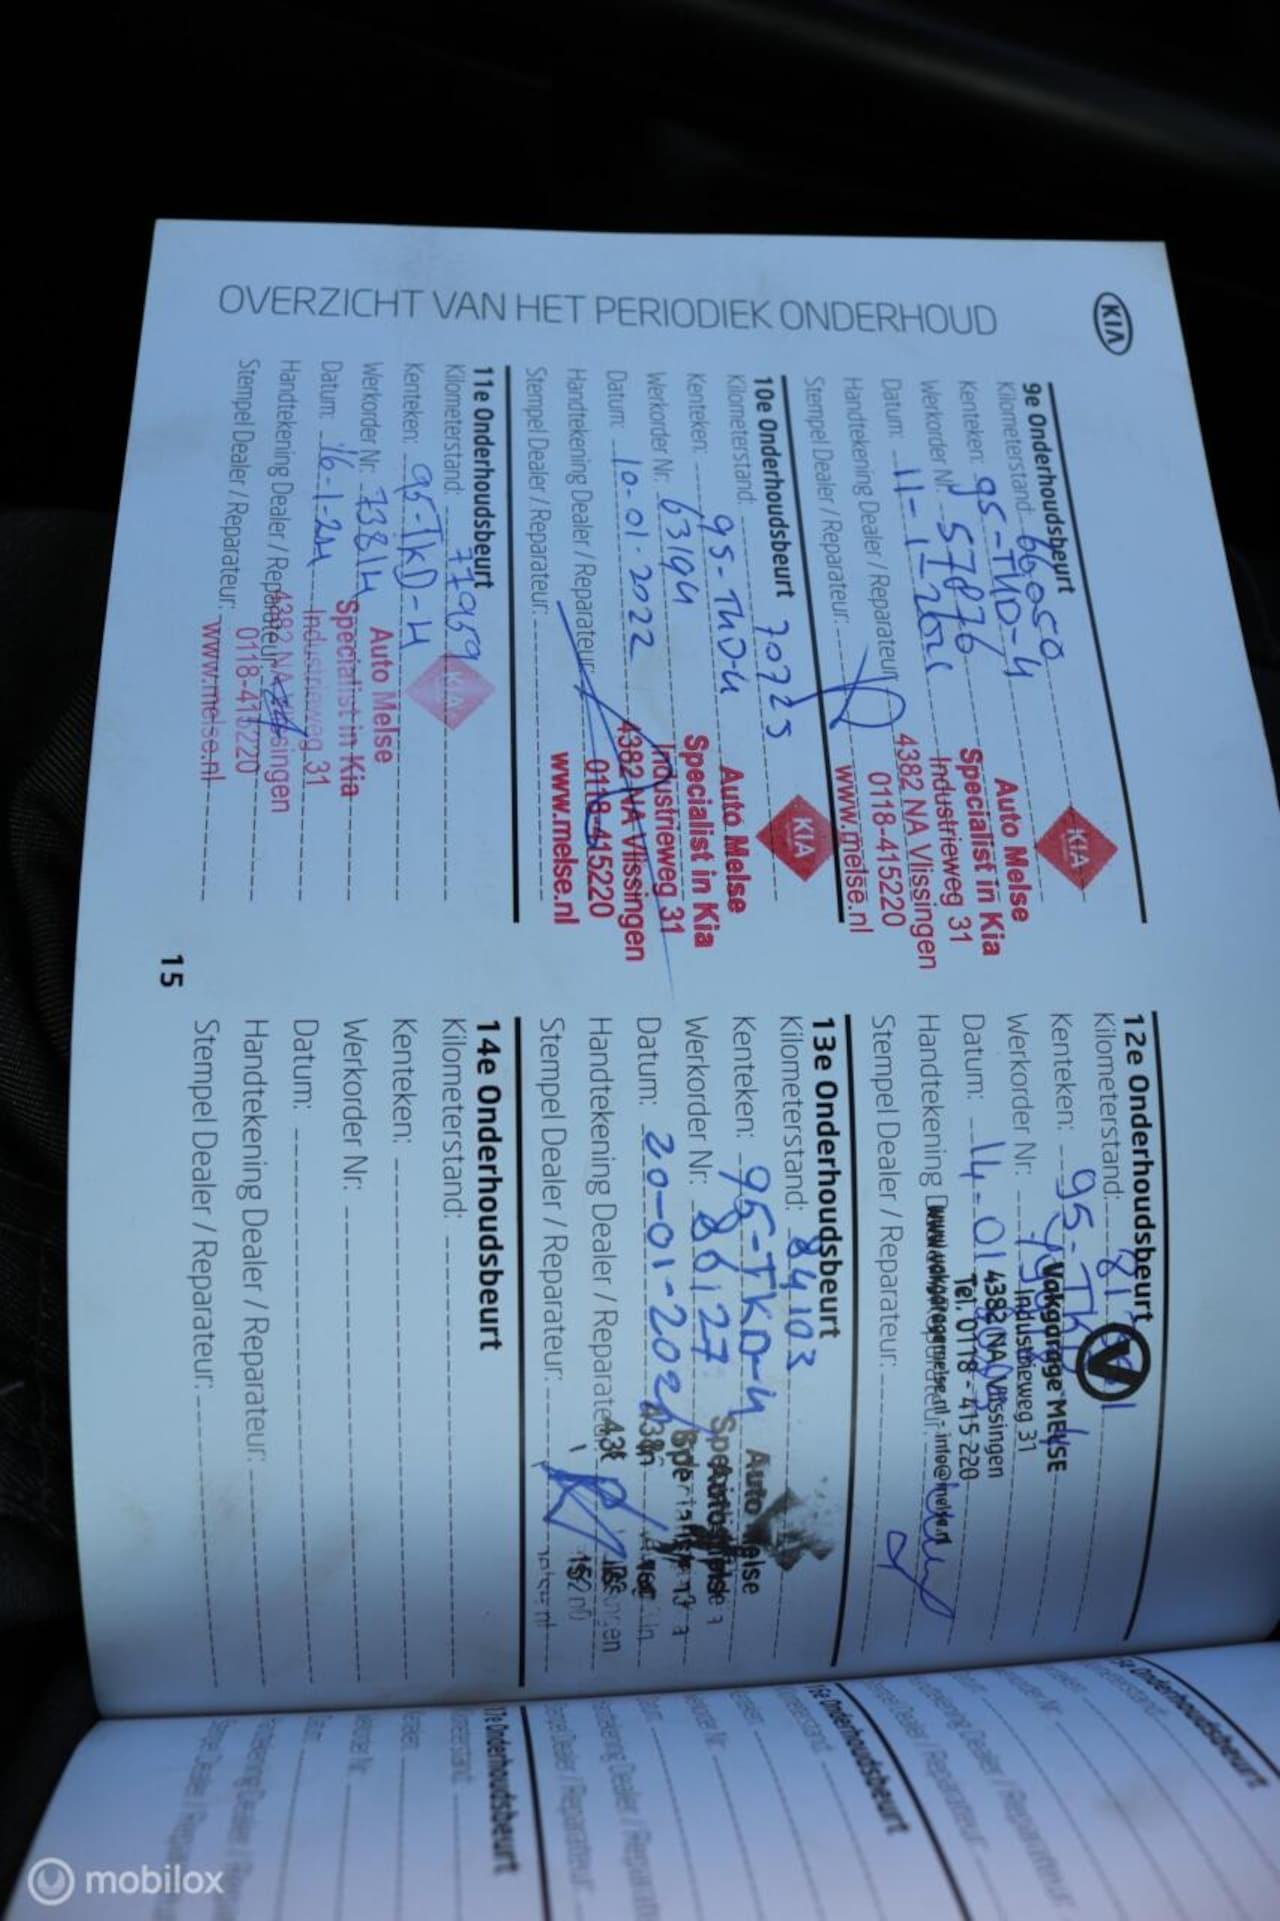 KIA
OVERZICHT VAN HET PERIODIEK ONDERHOUD
9e Onderhoudsbeurt
Kilometerstand: 66050
Kenteken: 95-TKD-4
Werkorder Nr: 57876
Datum: 11-1-2021
Handtekening Dealer / Reparateur:
Stempel Dealer / Reparateur:
KIA
Auto Melse
Specialist in Kia
Industrieweg 31
4382 NA Vlissingen
0118-415220
www.melse.nl
10e Onderhoudsbeurt
Kilometerstand: 70725
Kenteken: 95-TKD-4
Werkorder Nr: 63194
Datum: 10-01-2022
Handtekening Dealer / Reparateur:
Stempel Dealer / Reparateur:
KIA
Auto Melse
Specialist in Kia
Industrieweg 31
4382 NA Vlissingen
0118-415220
www.melse.nl
11e Onderhoudsbeurt
Kilometerstand: 77959
Kenteken: 95-TKD-4
Werkorder Nr: 73814
Datum: 16-1-24
Handtekening Dealer / Reparateur:
Stempel Dealer / Reparateur:
KIA
Auto Melse
Specialist in Kia
Industrieweg 31
4382 NA Vlissingen
0118-415220
www.melse.nl
15
12e Onderhoudsbeurt
Kilometerstand:
Kenteken: 95-TKD
Werkorder Nr:
Datum: 14-01
Handtekening Dealer / Reparateur:
Stempel Dealer / Reparateur:
V
Vakgarage MELSE
Industrieweg 31
4382 NA Vlissingen
Tel. 0118 - 415 220
www.vakgaragemelse.nl - info@melse.nl
13e Onderhoudsbeurt
Kilometerstand: 84103
Kenteken: 95-TKD-4
Werkorder Nr: 86127
Datum: 20-01-202
Handtekening Dealer / Reparateur:
Stempel Dealer / Reparateur:
Auto Melse
14e Onderhoudsbeurt
Kilometerstand:
Kenteken:
Werkorder Nr:
Datum:
Handtekening Dealer / Reparateur:
Stempel Dealer / Reparateur:
15e Onderhoudsbeurt
16e Onderhoudsbeurt
17e Onderhoudsbeurt
mobilox